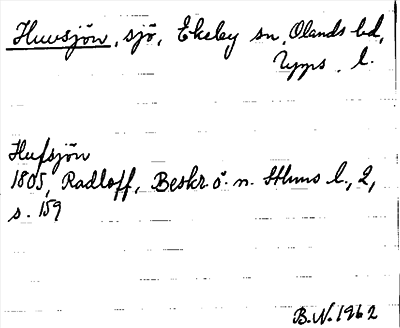 Huvsjön, sjö, Ekeby sn, Olands hd,
Upps. l.
Hufsjön
1805, Radloff, Beskr. ö. n. Sthms l., 2,
s. 159
B.N. 1962